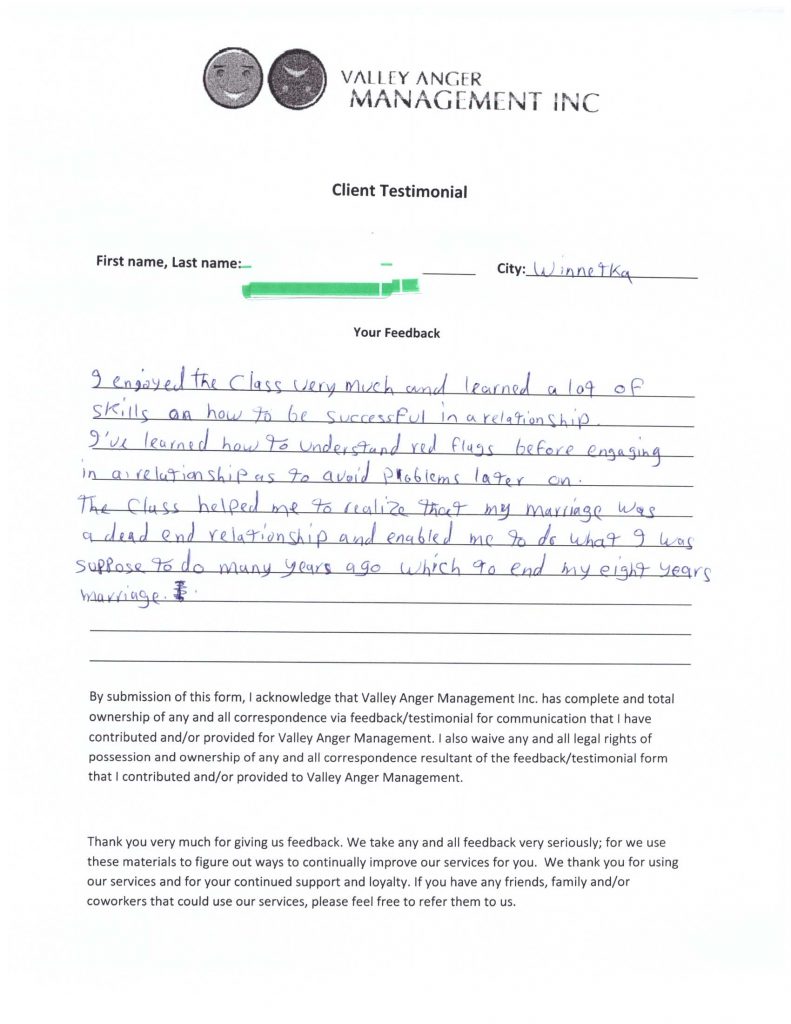 VALLEY ANGER
MANAGEMENT INC
Client Testimonial
First name, Last name: City: Winnetka
Your Feedback
I enjoyed the Class very much and learned a lot of
skills on how to be successful in a relationship.
I've learned how to understand red flags before engaging
in a relationship as to avoid problems later on.
The Class helped me to realize that my marriage was
a dead end relationship and enabled me to do what I was
suppose to do many years ago which to end my eight years
marriage.
By submission of this form, I acknowledge that Valley Anger Management Inc. has complete and total
ownership of any and all correspondence via feedback/testimonial for communication that I have
contributed and/or provided for Valley Anger Management. I also waive any and all legal rights of
possession and ownership of any and all correspondence resultant of the feedback/testimonial form
that I contributed and/or provided to Valley Anger Management.
Thank you very much for giving us feedback. We take any and all feedback very seriously; for we use
these materials to figure out ways to continually improve our services for you. We thank you for using
our services and for your continued support and loyalty. If you have any friends, family and/or
coworkers that could use our services, please feel free to refer them to us.